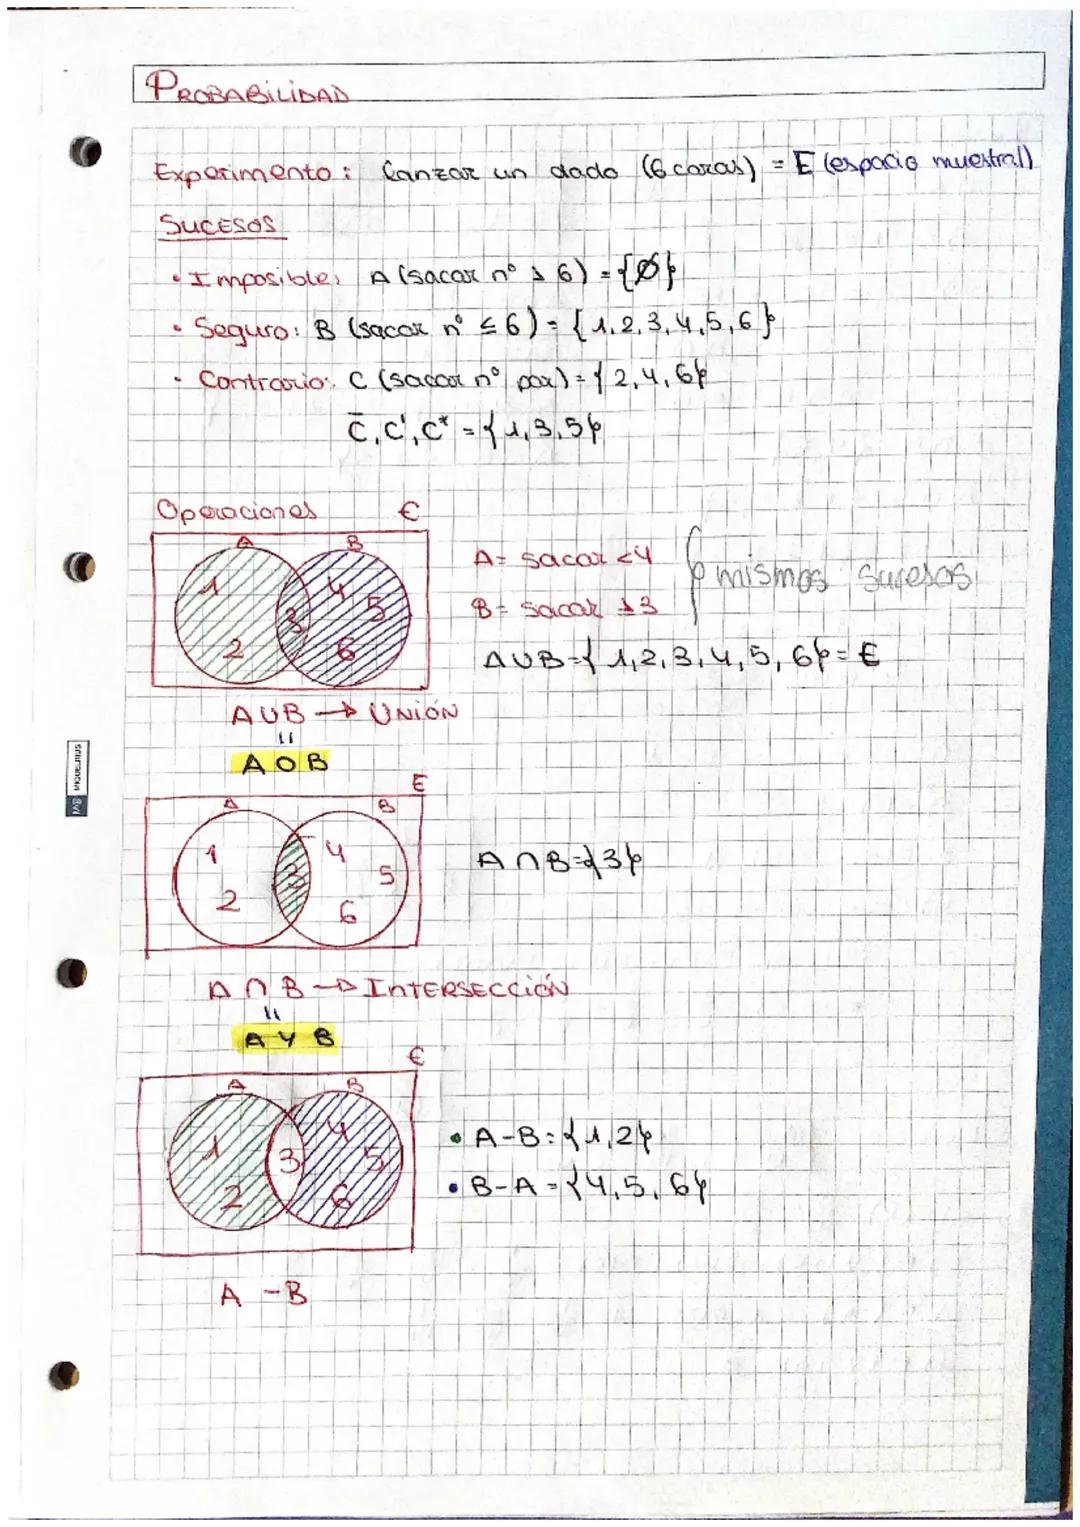 PROBABILIDAD
Experimento: Lanzar un dado (6 caras) = E (espacio muestral)
SUCESOS
• Imposible: A (sacar nº > 6) = {Ø}
• Seguro: B (sacar nº ≤ 6) = {1,2,3,4,5,6}
• Contrario: C (sacar nº par) = {2,4,6}
C̄, C', C* = {1,3,5}
Operaciones E
A B
1 2 3 4 5 6
A = sacar <4
B = sacar >3
mismos sucesos
AUB = {1,2,3,4,5,6} = E
AUB → UNIÓN
=
A O B
E
A B
1 2 3 4 5 6
A∩B = {3}
A∩B → INTERSECCIÓN
=
A Y B
E
A B
1 2 3 4 5 6
• A-B: {1,2}
• B-A = {4,5,6}
A - B
MIQUELRIUS